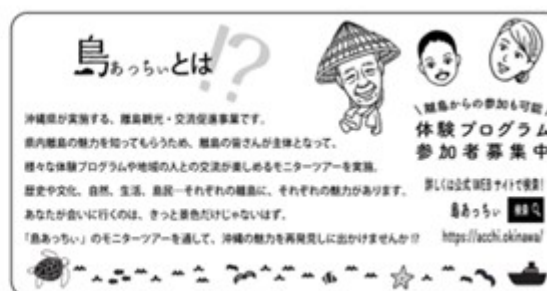 島あっちぃとは!?
沖縄県が実施する、離島観光・交流促進事業です。
県内離島の魅力を知ってもらうため、離島の皆さんが主体となって、
様々な体験プログラムや地域の人との交流が楽しめるモニターツアーを実施。
歴史や文化、自然、生活、島民…それぞれの離島に、それぞれの魅力があります。
あなたが会いに行くのは、きっと景色だけじゃないはず。
「島あっちぃ」のモニターツアーを通して、沖縄の魅力を再発見しに出かけませんか!?
\離島からの参加も可能/
体験プログラム
参加者募集中
詳しくは公式WEBサイトで検索!
島あっちぃ 検索
https://acchi.okinawa/